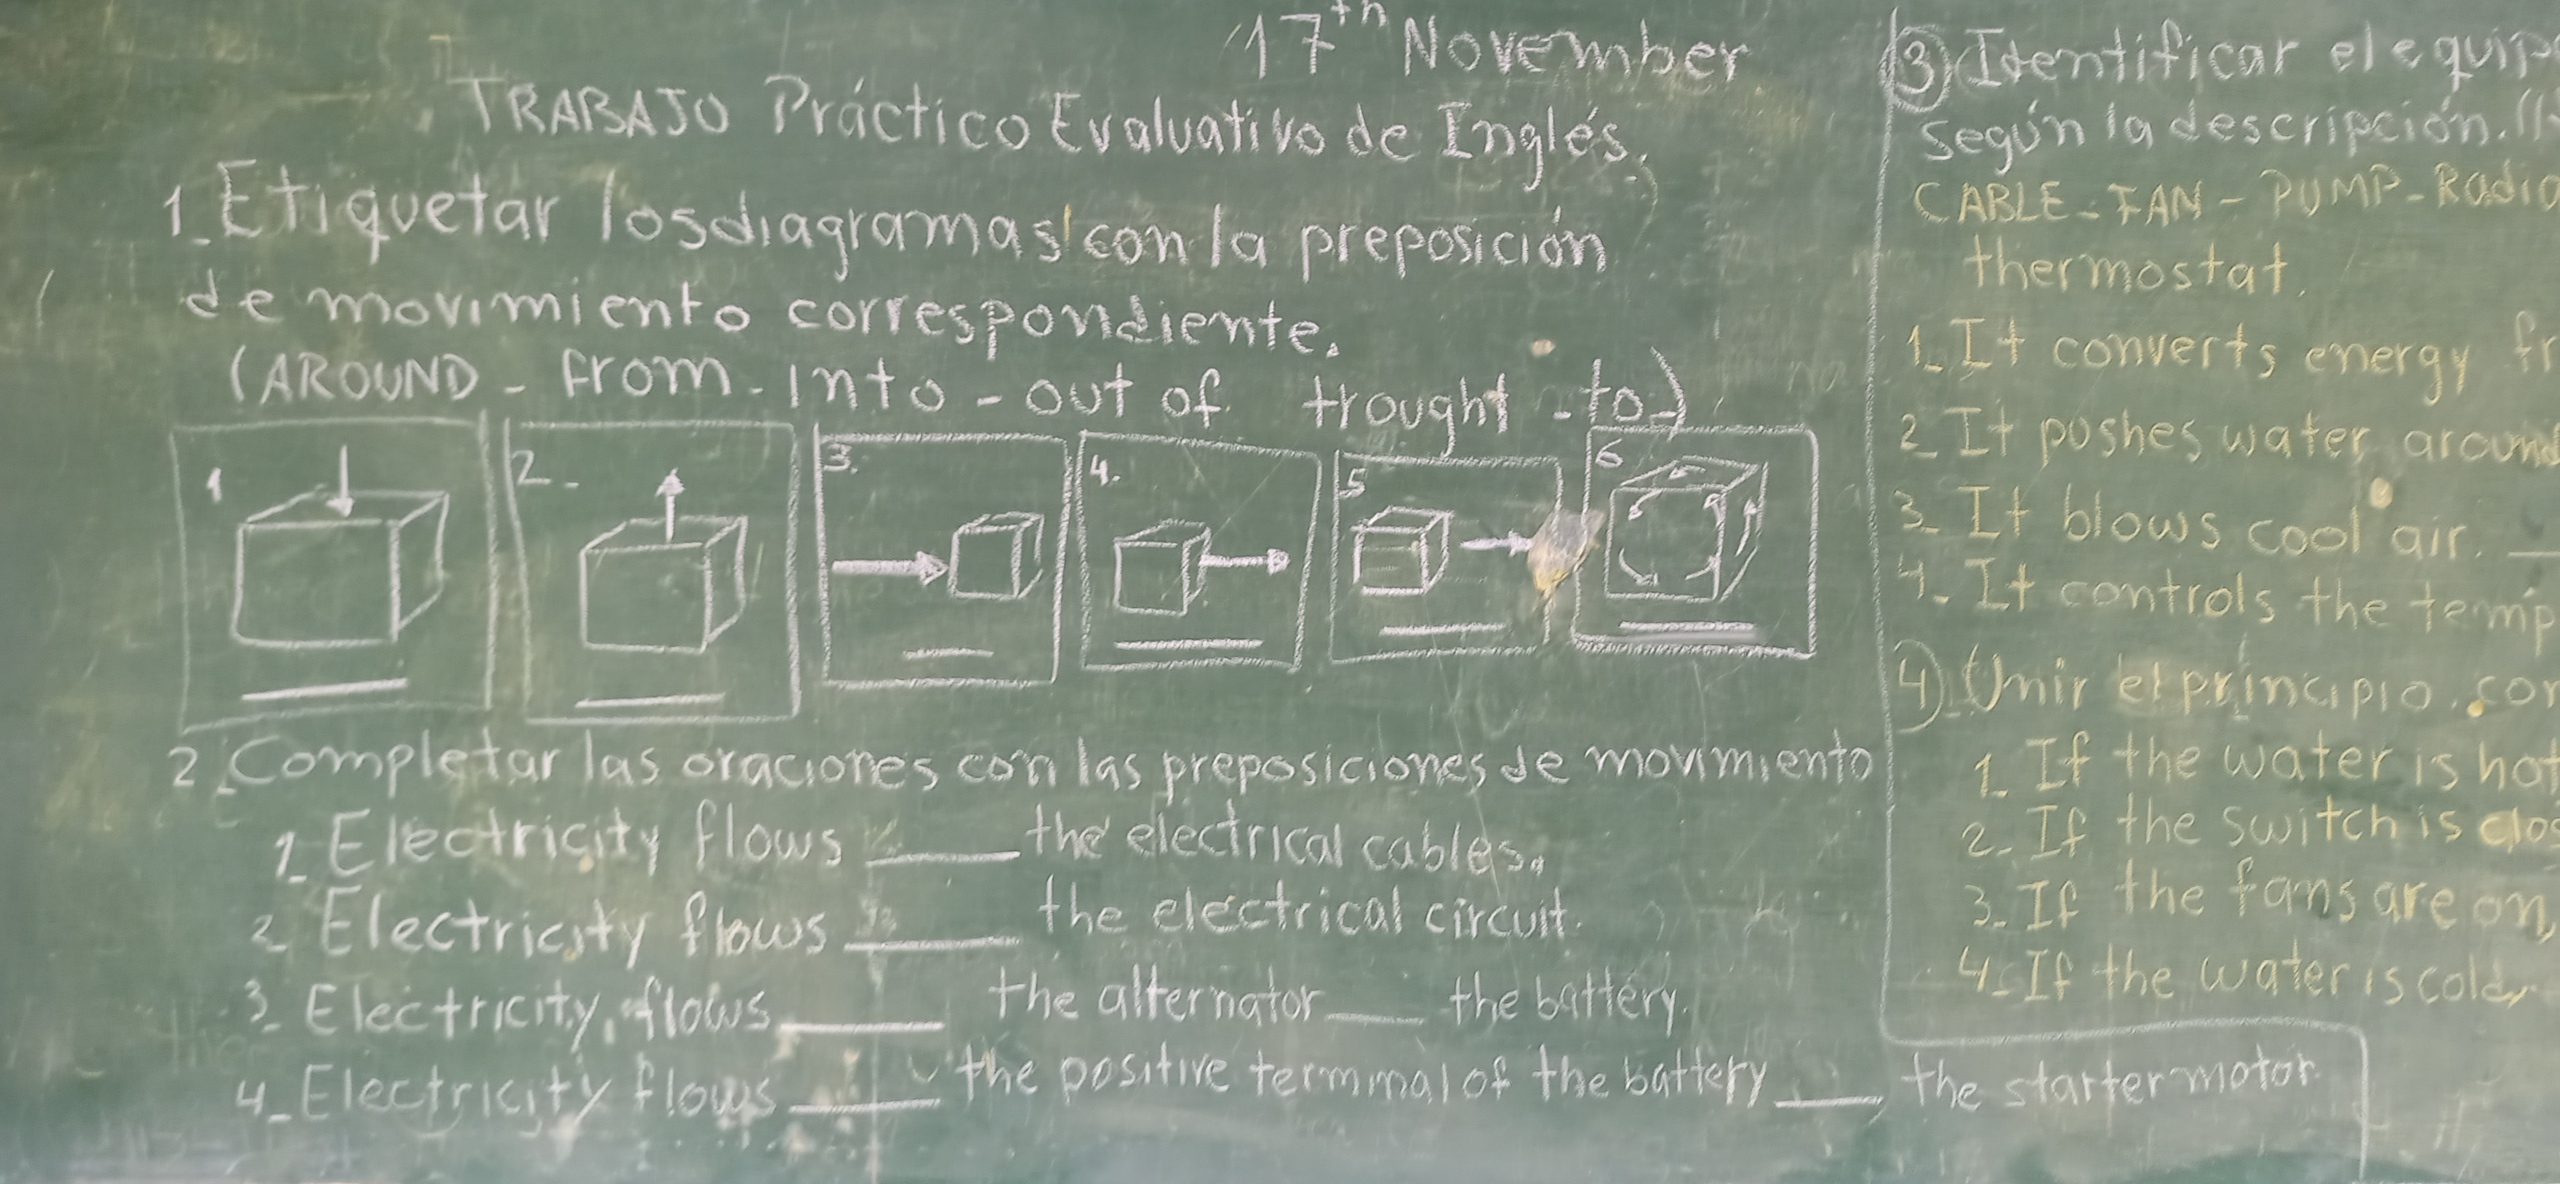 17th November
TRABAJO Práctico Evaluativo de Inglés.
1_ Etiquetar los diagramas con la preposición
de movimiento correspondiente.
(AROUND - From - Into - out of trought - to)
1
2.
3.
4.
5
6
2_ Completar las oraciones con las preposiciones de movimiento
1_ Electricity flows ____ the electrical cables.
2 Electricity flows ____ the electrical circuit.
3_ Electricity flows ____ the alternator ___ the battery.
4_ Electricity flows ____ the positive terminal of the battery ___ the starter motor
3) Identificar el equip
Según la descripción.
CABLE - FAN - PUMP - Radia
thermostat.
1_ It converts energy fr
2 It poshes water around
3_ It blows cool air. _
4_ It controls the temp
4) Unir el principio con
1_ If the water is hot
2_ If the switch is clos
3_ If the fans are on,
4_ If the water is cold,